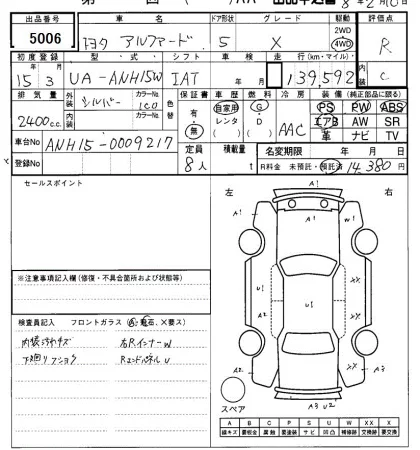 出品番号 車名 ドア形状 グレード 駆動 評価点
5006 トヨタ アルファード 5 X 2WD 4WD R
初度登録 型・式 シフト 車検 走行(km・マイル) 内装
15年3月 UA-ANH15W IAT 年 月 139,592 C
排気量 外装 シルバー カラーNo. 1C0 色替 保証書 車歴 燃料 冷房 装備(純正部品に限る)
2400c.c. 内装 カラーNo. 有・無 自家用 レンタ ( ) G D ( ) AAC PS PW ABS
エアB AW SR
革 ナビ TV
車台No ANH15-0009217 定員 8人 積載量 t 名変期限 年 月 日
登録No R料金 未預託・預託済 14,380円
セールスポイント
左 右
A1 A1 W1
※注意事項記入欄(修復・不具合箇所および状態等)
U1 U1 XX
検査員記入 フロントガラス(A、飛石、X要ス)
A2 XX XX
内装汚れキズ 右Rインナーw
下廻りフショク RエンドパネルU
A2 A3
スペア A3 U2
A B C P S U W X XX X
線キズ 要板金 腐蝕 要塗装 サビ 凹凸 補修跡 交換跡 要交換